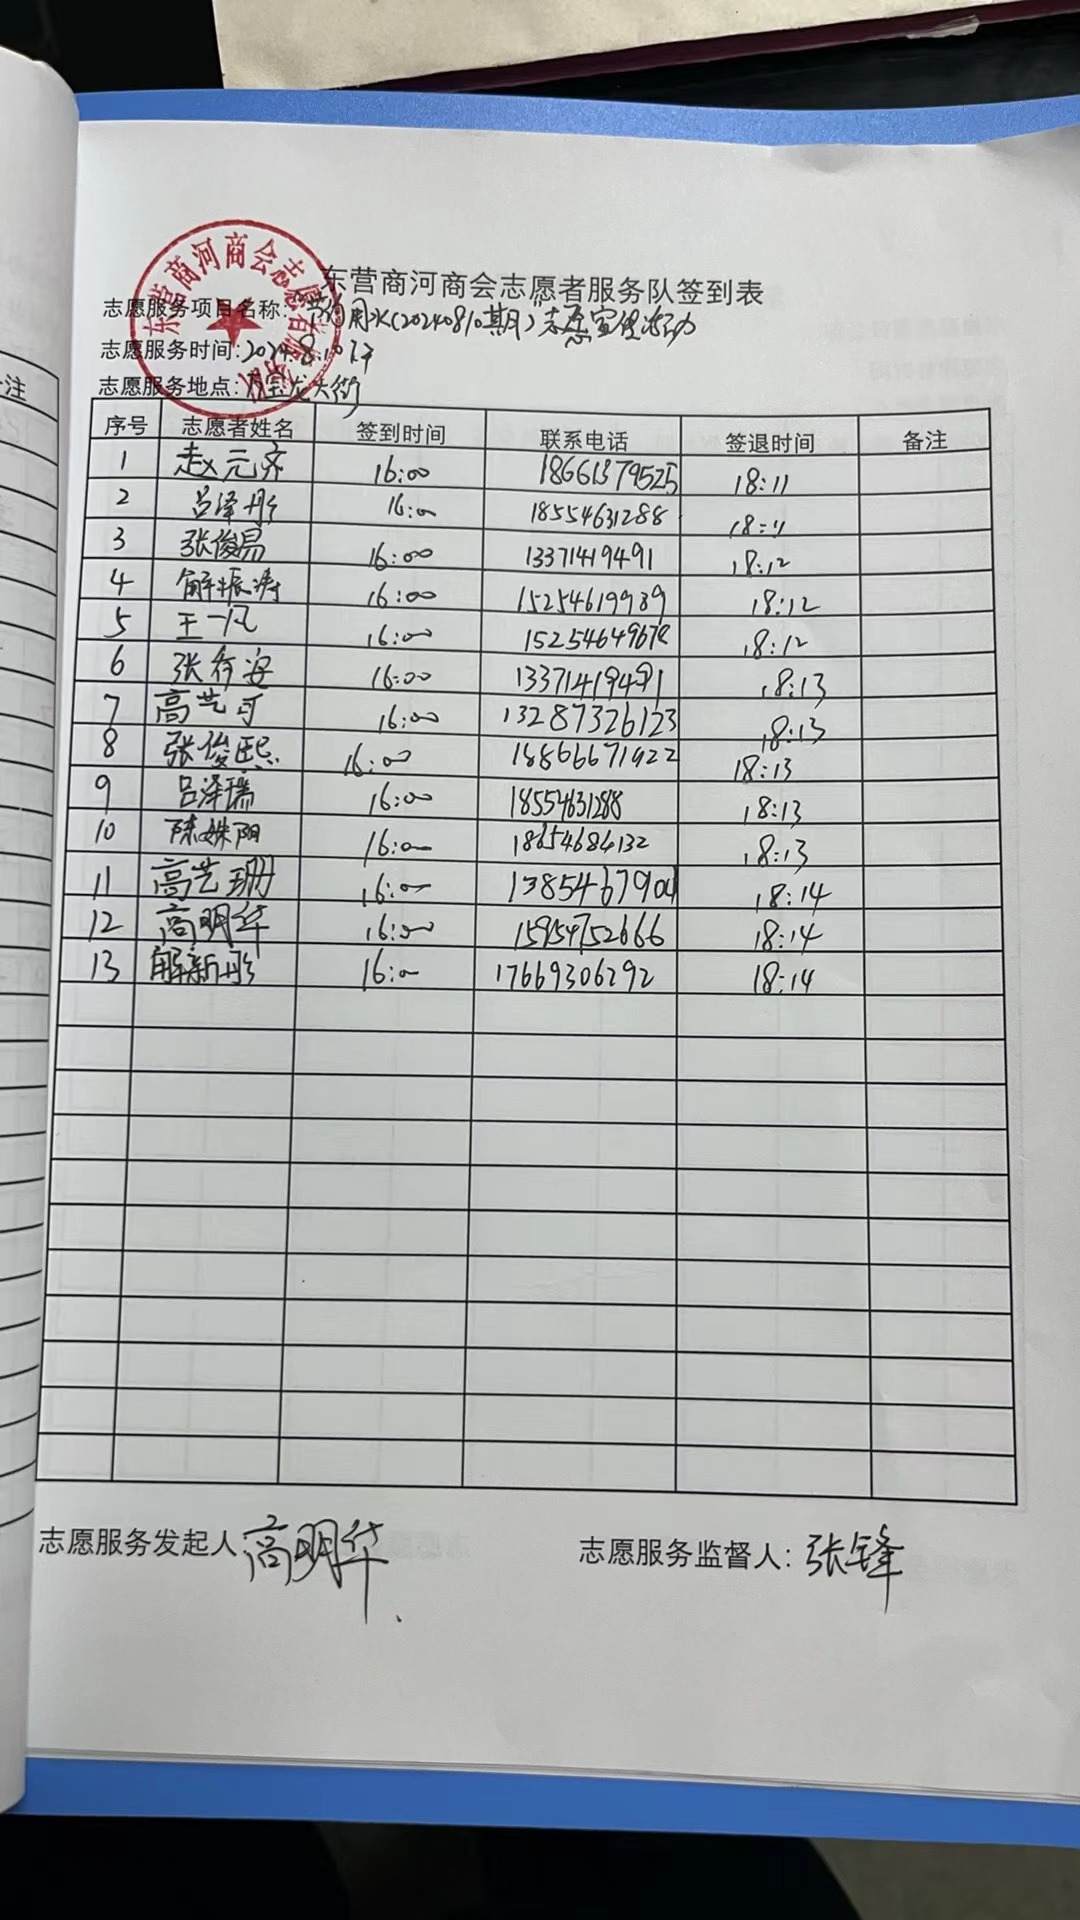 注
东营商河商会志愿者服务队
东营商河商会志愿者服务队签到表
志愿服务项目名称: 节约用水(20240810期)志愿宣传活动
志愿服务时间: 2024.8.10下午
志愿服务地点: 宝龙大街
序号 志愿者姓名 签到时间 联系电话 签退时间 备注
1 赵元齐 16:00 18661379525 18:11
2 吕泽彤 16:00 18554631288 18:11
3 张俊易 16:00 13371419491 18:12
4 解振涛 16:00 15254619939 18:12
5 王一凡 16:00 18:12
6 张行安 16:00 13371419491 18:13
7 高艺可 16:00 13287326123 18:13
8 张俊熙 16:00 18866671922 18:13
9 吕泽瑞 16:00 18554631288 18:13
10 陈姝阳 16:00 18654684132 18:13
11 高艺珊 16:00 18:14
12 高明华 16:00 15954752666 18:14
13 解新彤 16:00 17669306292 18:14
志愿服务发起人: 高明华
志愿服务监督人: 张锋